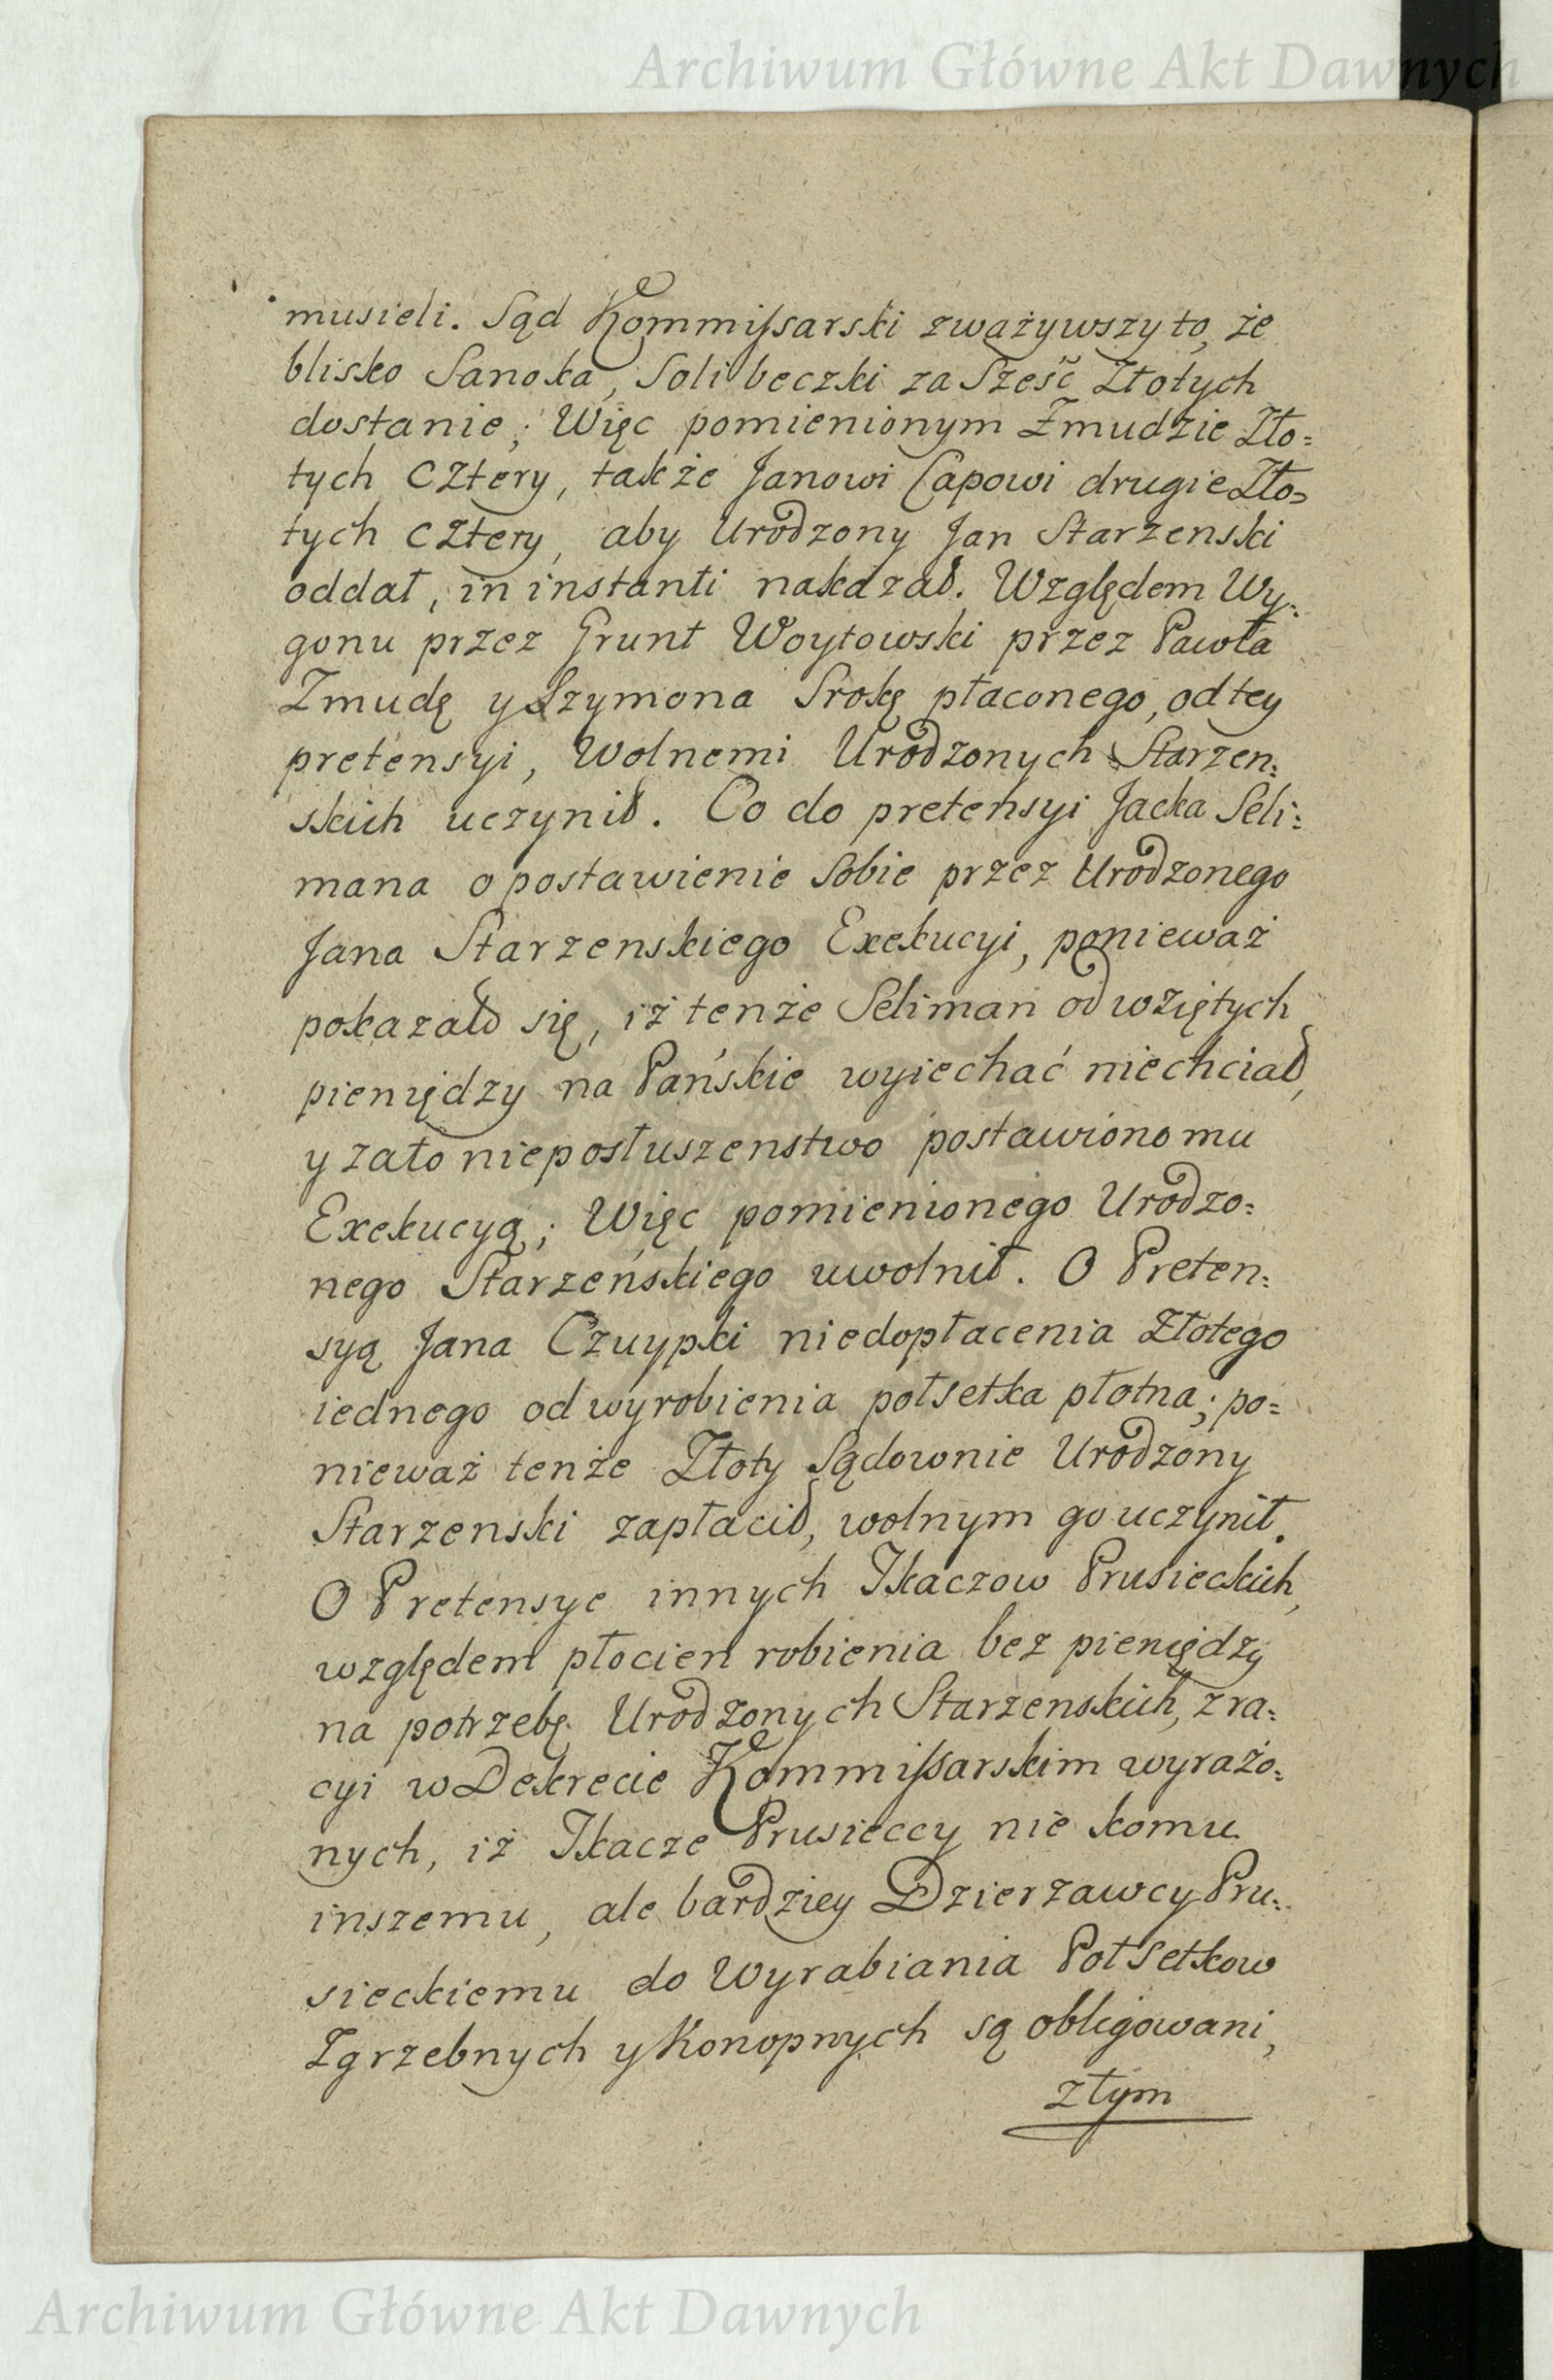 Archiwum Główne Akt Dawnych
musieli. Sąd Kommissarski zważywszy to, że
blisko Sanoka, Soli beczki za Sześć Złotych
dostanie; Więc pomienionym Żmudzie Zło=
tych cztery, także Janowi Capowi drugie Zło=
tych cztery, aby Urodzony Jan Starzenski
oddał, in instanti nakazał. Względem Wy=
gonu przez Grunt Woytowski przez Pawła
Zmudę y Szymona Srokę płaconego, od tey
pretensyi, Wolnemi Urodzonych Starzen=
skich uczynił. Co do pretensyi Jacka Seli=
mana o postawienie Sobie przez Urodzonego
Jana Starzenskiego Exekucyi, ponieważ
pokazało się, iż tenże Seliman od wziętych
pieniędzy na Pańskie wyiechać niechciał,
y zato nieposłuszenstwo postawiono mu
Exekucyą; Więc pomienionego Urodzo=
nego Starzeńskiego uwolnił. O Preten=
syą Jana Czuypki niedopłacenia Złotego
iednego od wyrobienia połsetka płotna; po=
nieważ tenże Złoty Sądownie Urodzony
Starzenski zapłacił, wolnym go uczynił.
O Pretensye innych Tkaczow Prusieckich,
względem płocien robienia bez pieniędzy
na potrzebę Urodzonych Starzenskich, z ra=
cyi w Dekrecie Kommissarskim wyrażo=
nych, iż Tkacze Prusieccy nie komu
inszemu, ale bardziey Dzierzawcy Pru=
sieckiemu do Wyrabiania Połsetkow
Zgrzebnych y Konopnych są obligowani,
z tym
Archiwum Główne Akt Dawnych